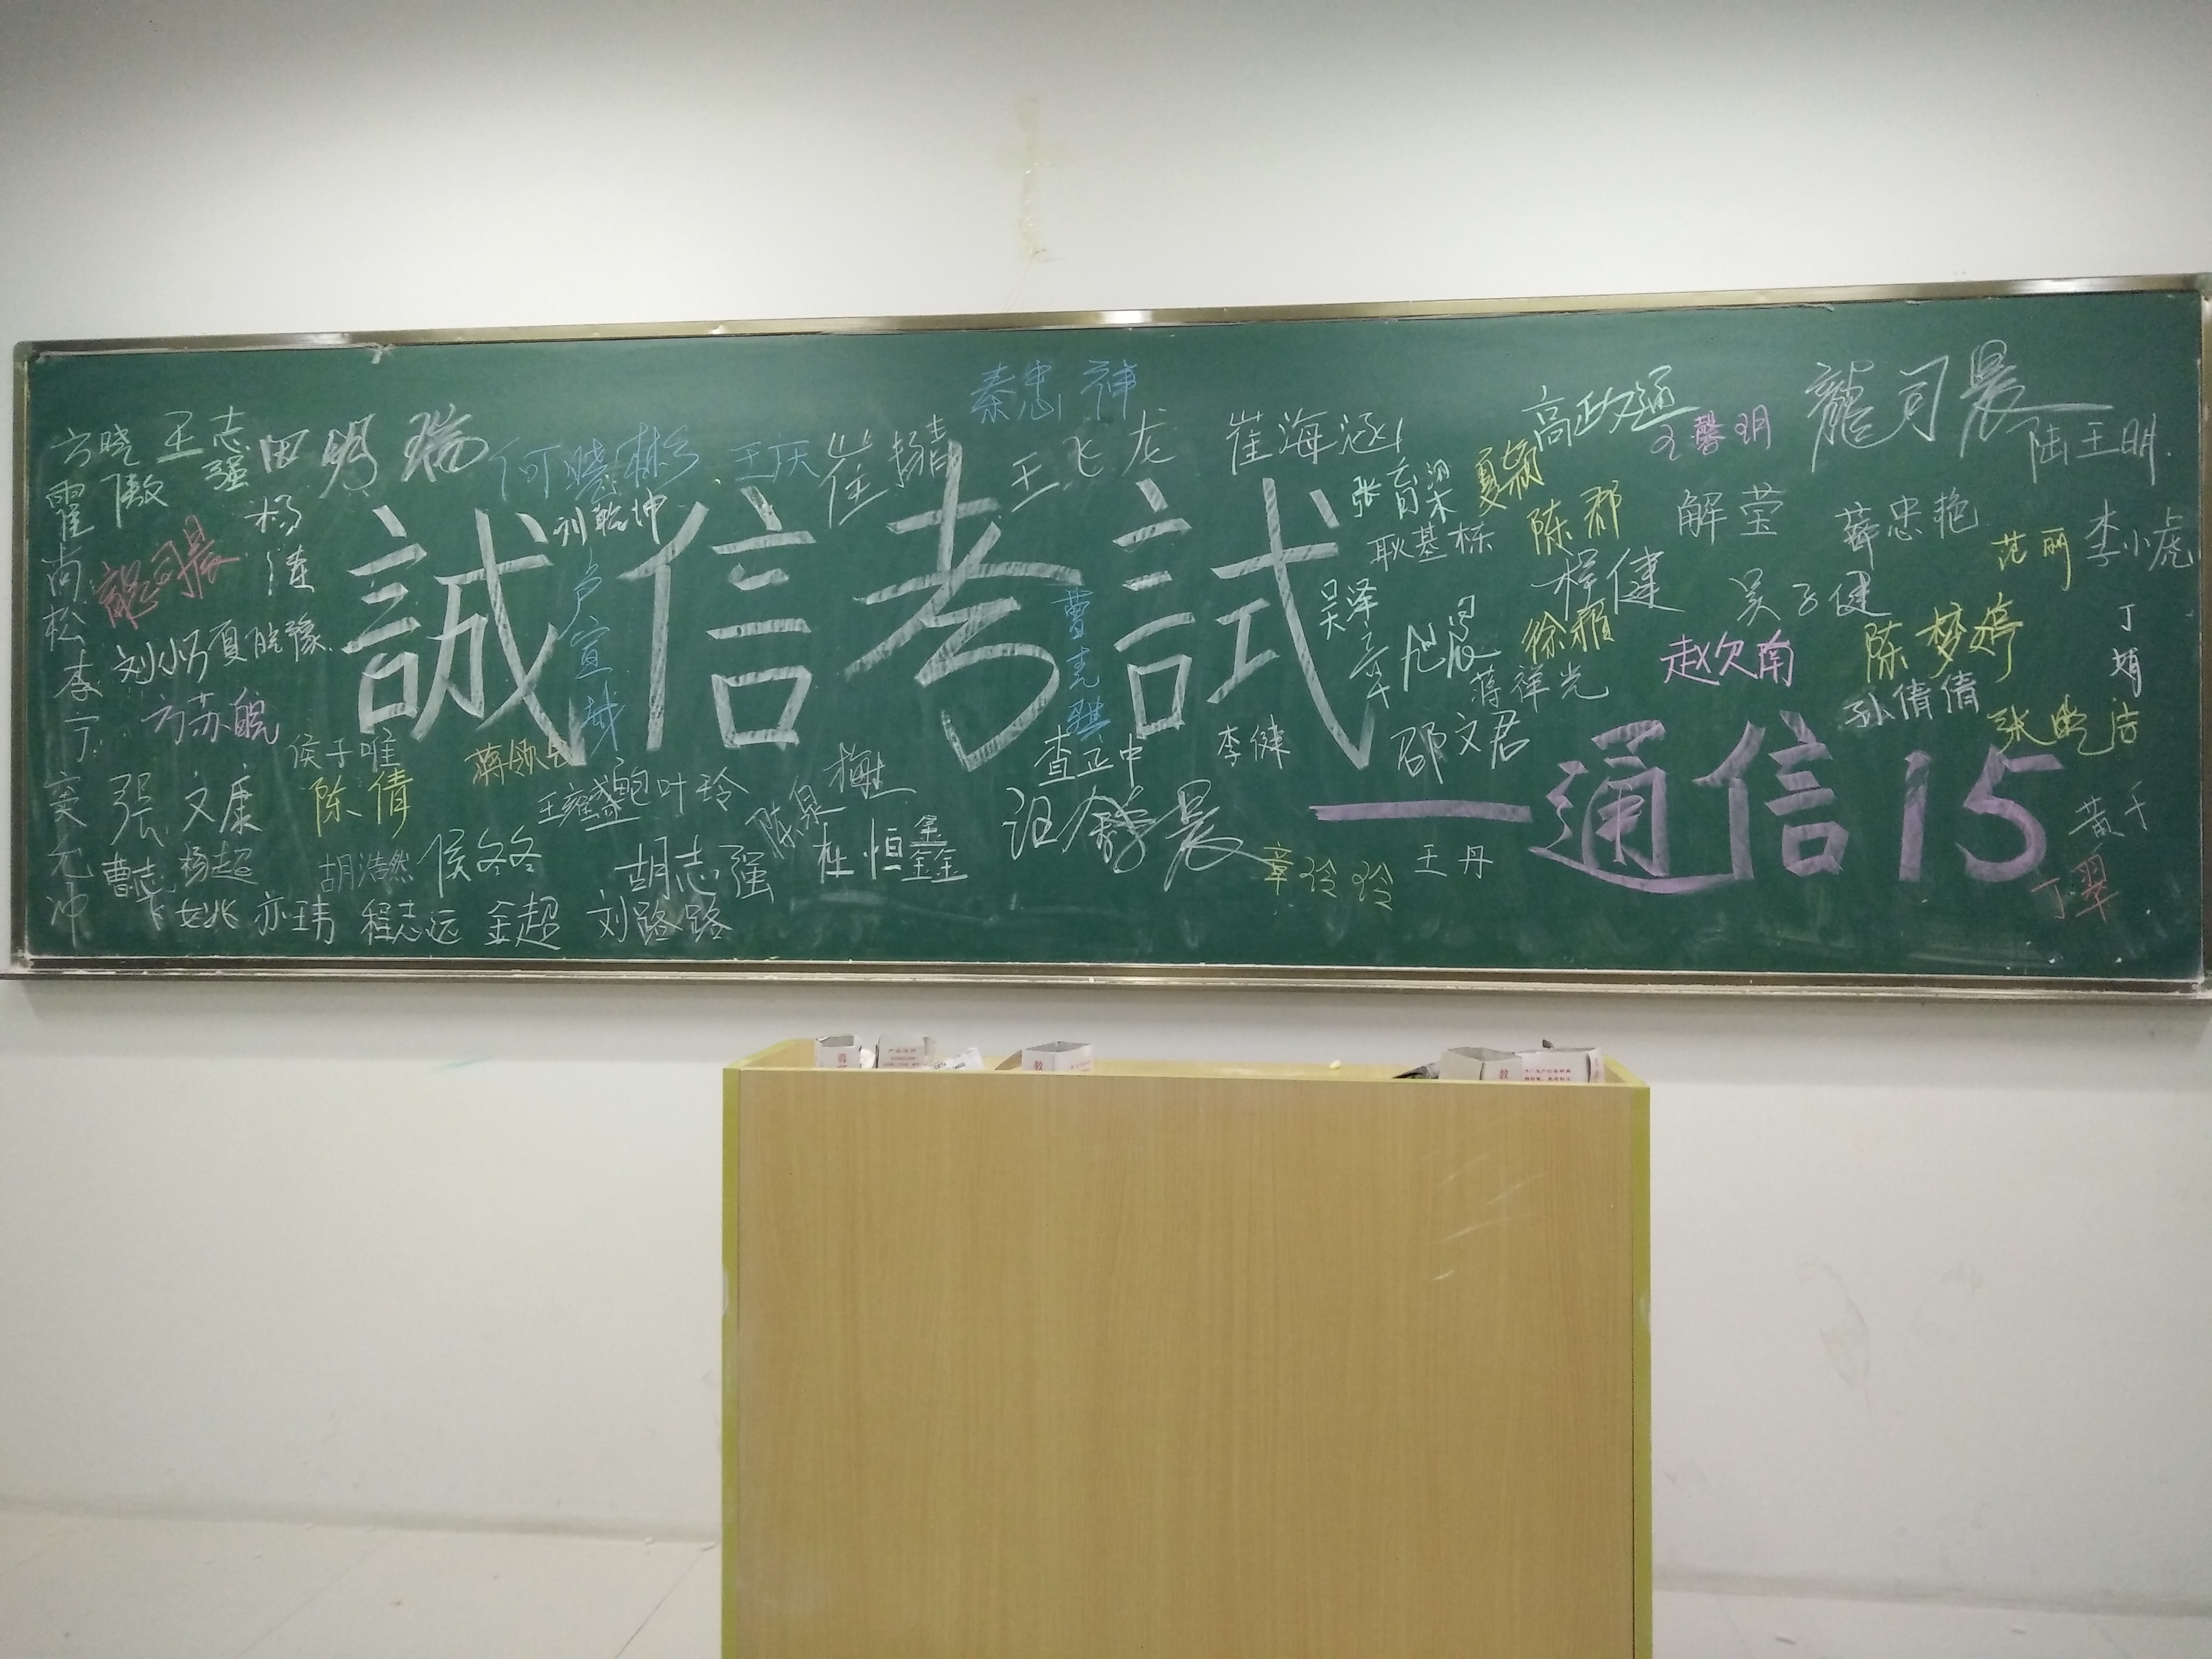 秦忠祥
高政通
龍司晨
方晓
王志强
田明瑞
何晓彬
王庆
崔扬
王飞龙
崔海涵
陆王明
杨
刘乾坤
夏颖
陈郡
解莹
薛忠艳
范丽
李小虎
龍司晨
誠信考試
耿基栋
程健
吴子健
尚松
卢宣越
曹克骐
吴泽
徐霜
赵欠南
陈梦婷
丁娟
李一丁
刘小乃
夏皖豫
方苏皖
蒋祥光
孙倩倩
侯于唯
蒋领
查正中
李健
邵文君
张
洁
张文康
陈倩
叶玲
陈泉
梅
汪舒晨
——通信15
黄千
奕元冲
曹志飞
杨超
胡浩然
侯冬冬
胡志强
杜恒鑫
章玲玲
王丹
丁翠
姚亦玮
程志远
金超
刘路路